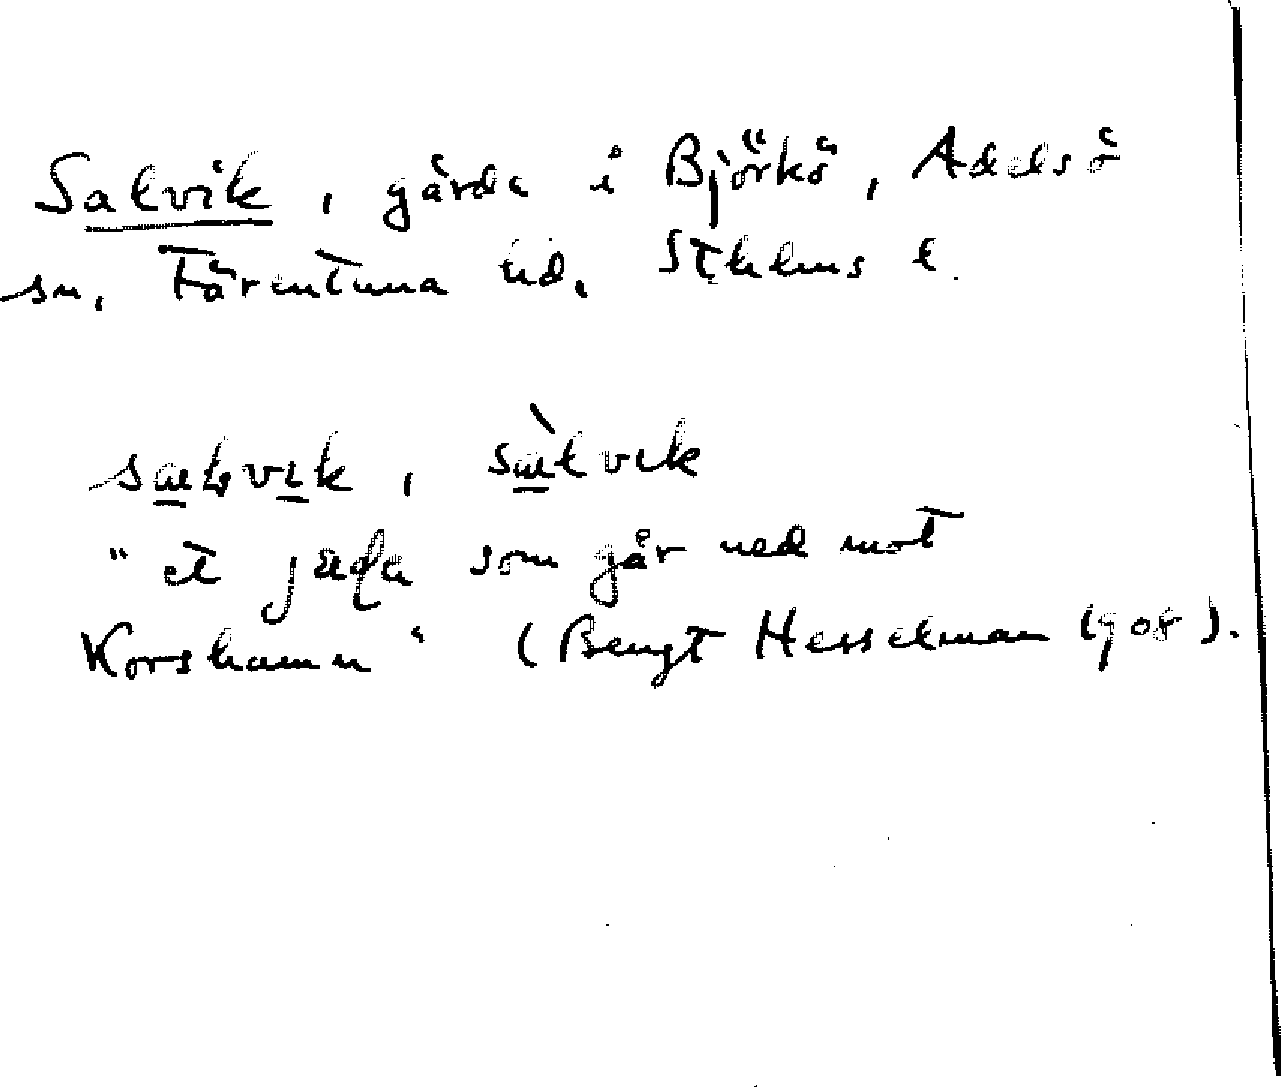 Salvik, gärde i Björkö, Adelsö
sn, Färentuna hd, Sthlms l.
sælvik, sælvik
"et jæḍa som går ned mot
Korshamn" (Bengt Hesselman 1908).